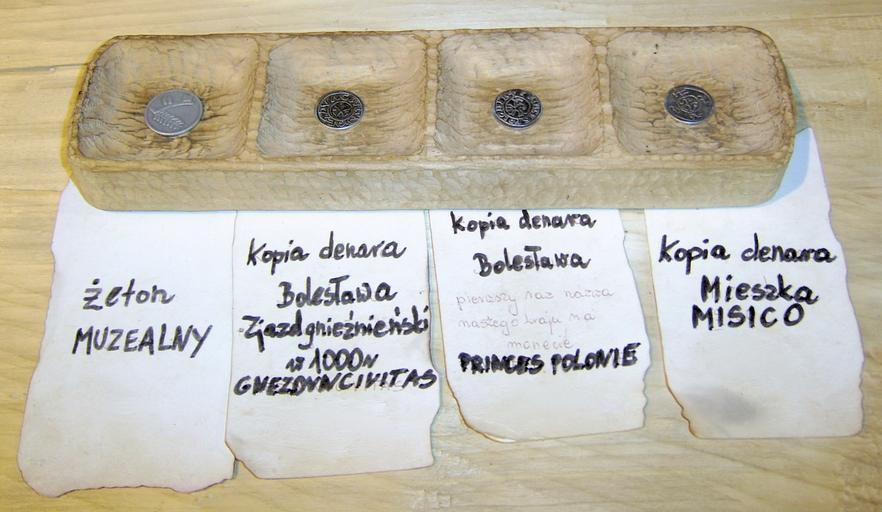 żeton
MUZEALNY
Kopia denara
Bolesława
Zjazd gnieźnieński
w 1000r
GNEZDVNCIVITAS
Kopia denara
Bolesława
pierwszy raz nazwa
naszego kraju na
monecie
PRINCES POLONIE
Kopia denara
Mieszka
MISICO